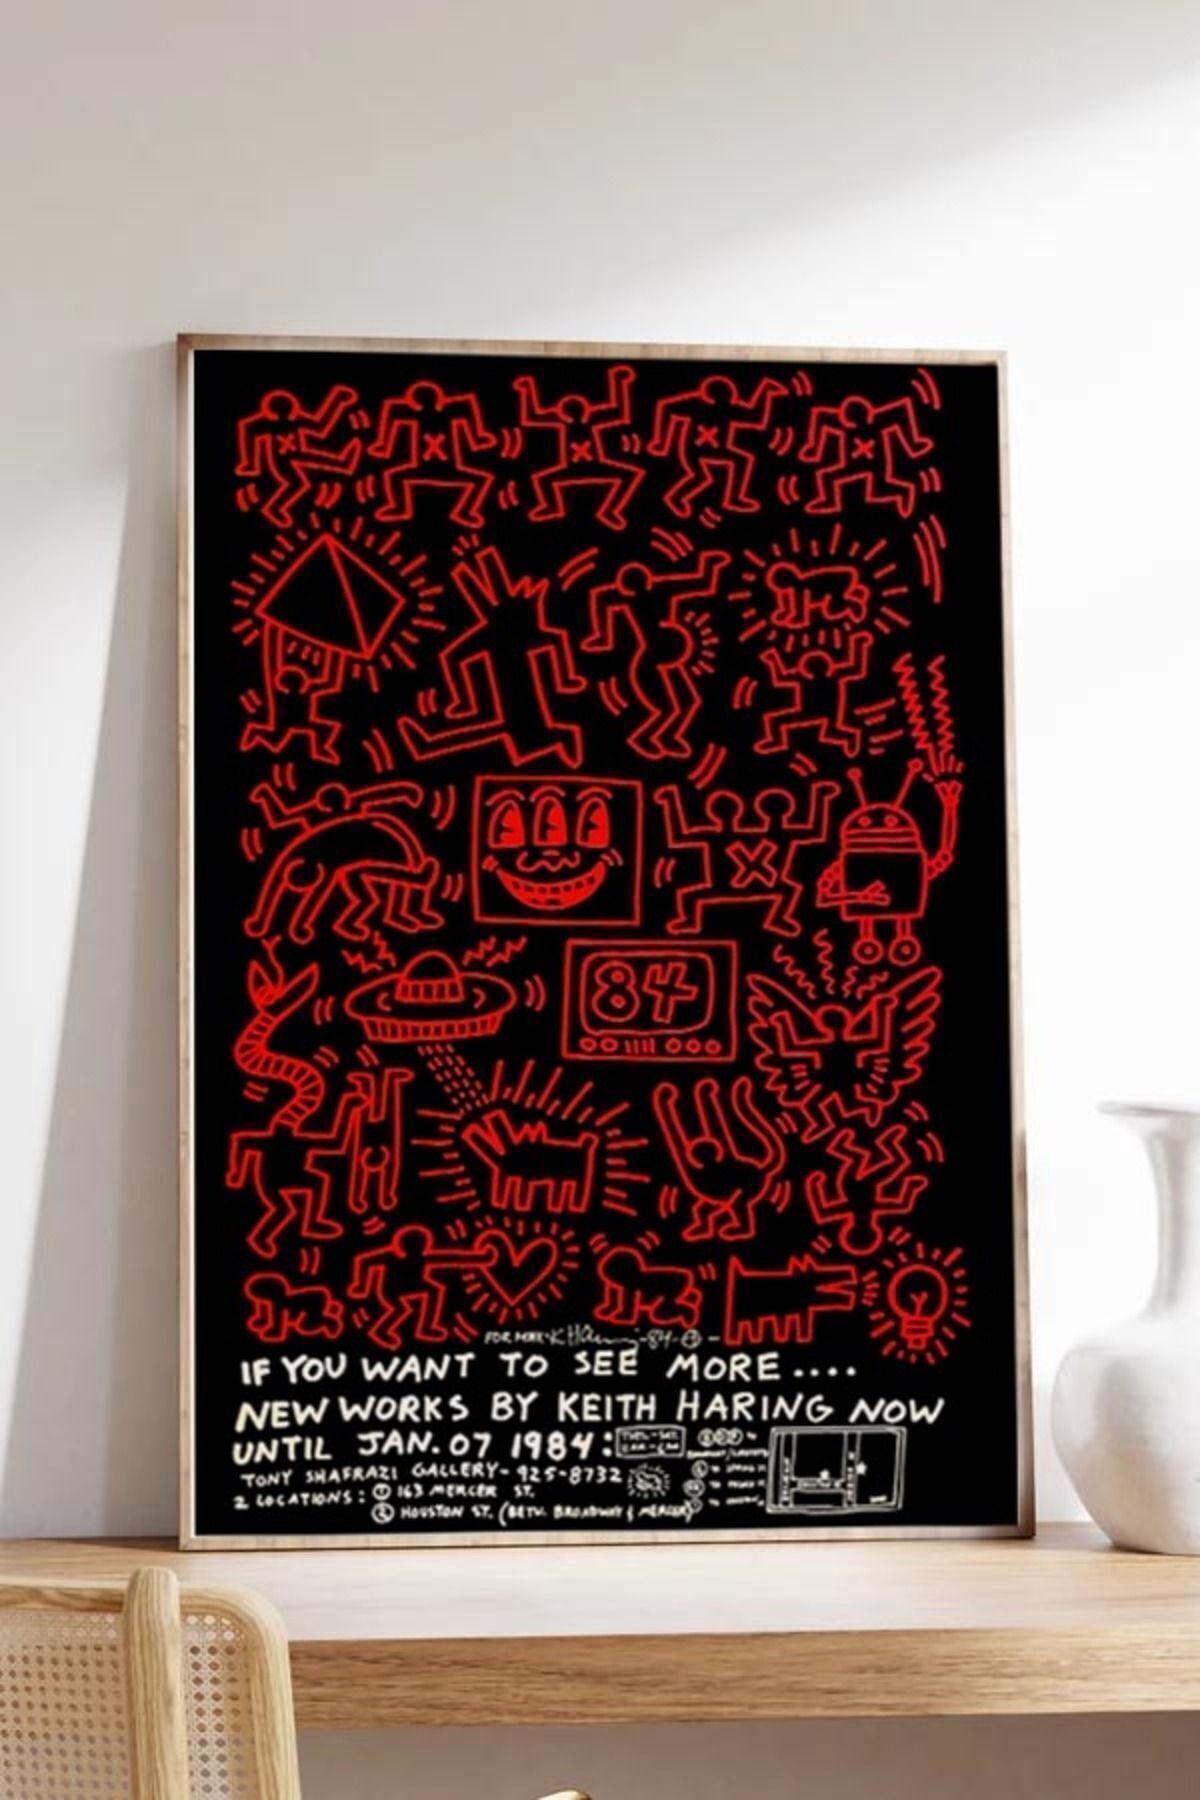 84
FOR
K Haring -84-
IF YOU WANT TO SEE MORE....
NEW WORKS BY KEITH HARING NOW
UNTIL JAN. 07 1984:
TUES-SAT.
TONY SHAFRAZI GALLERY- 925-8732
2 LOCATIONS: ① 163 MERCER ST.
② HOUSTON ST. (BETW. BROADWAY & MERCER)